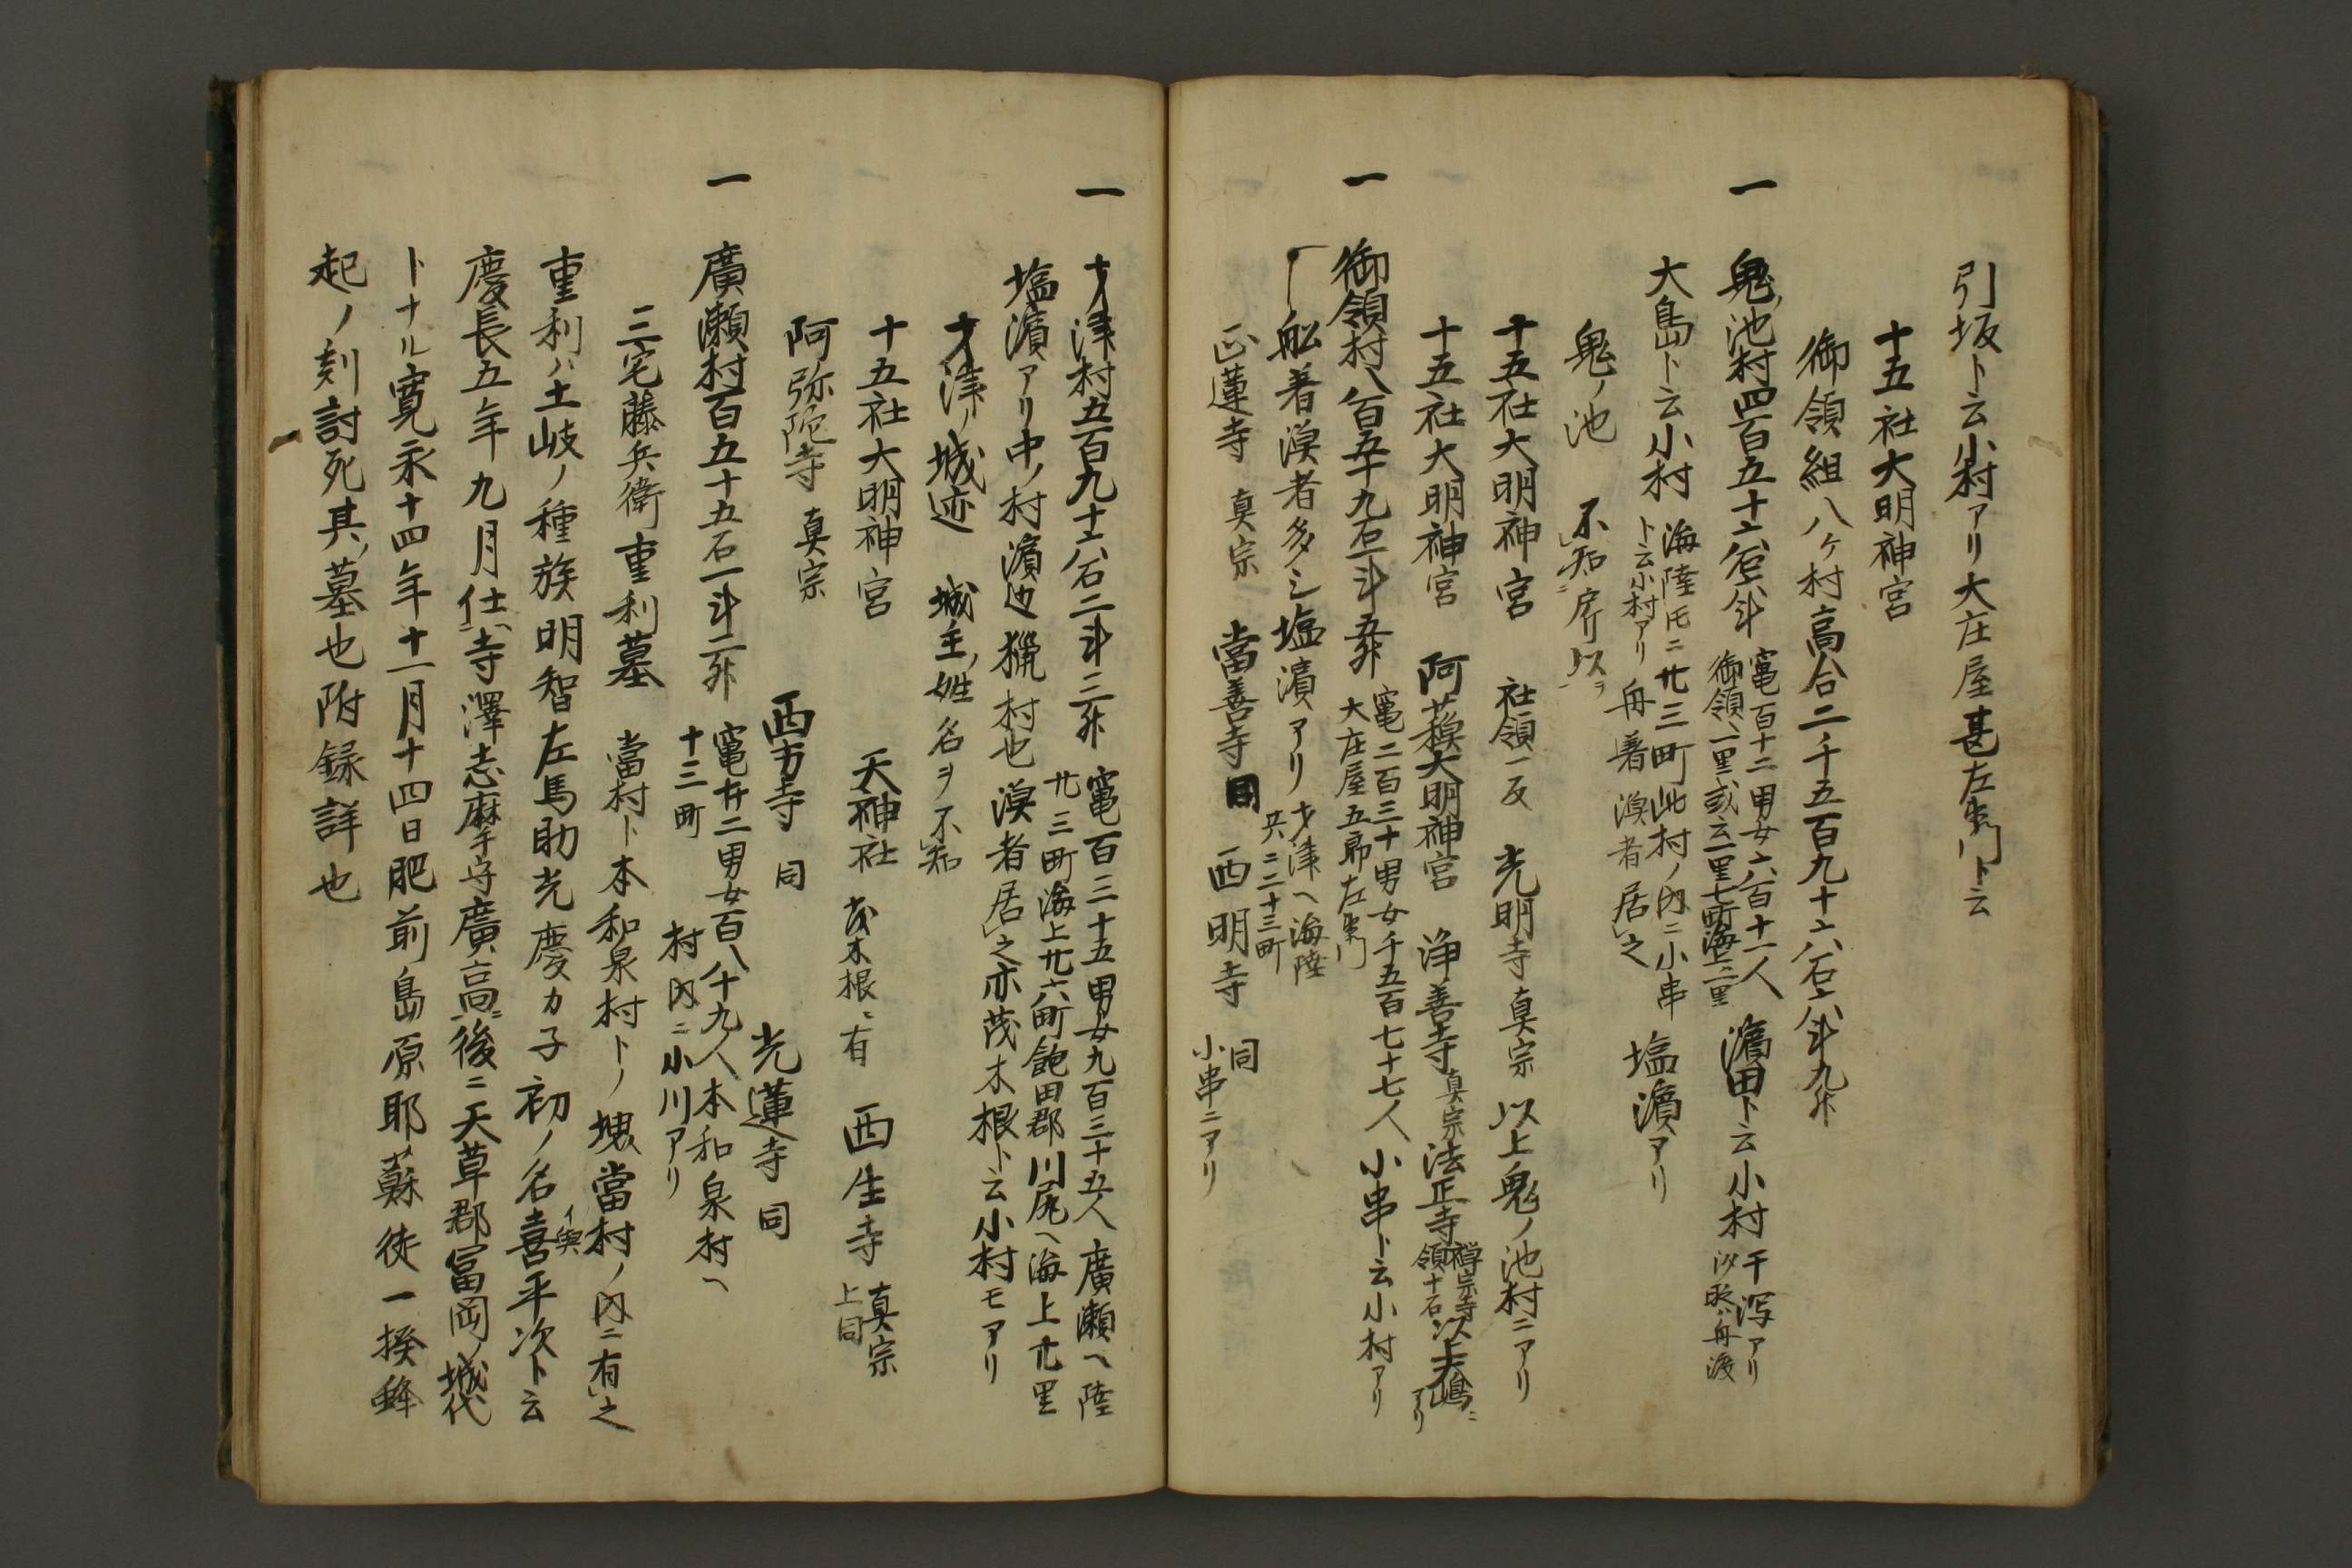 引坂ト云小村アリ大庄屋甚左衛門ト云
十五社大明神宮
御領組八ケ村高合二千五百九十六石六斗九升
一 鬼ノ池村四百五十六石八斗 竃百十二男女六百十一人 濱田ト云小村 干泻アリ
御領ヘ一里或云一里七町海上二里 汐呎ハ舟渡
大島ト云小村 海陸𪜈ニ廾三町此村ノ内ニ小串 塩濱アリ
ト云小村アリ 舟着 漁者居之
鬼ノ池 不知所以ヲ
十五社大明神宮 社領一反 光明寺 真宗 以上鬼ノ池村ニアリ
十五社大明神宮 阿蘓大明神宮 浄善寺 真宗 法正寺 禅宗寺領十石 以上大嶋ニアリ
一 御領村八百五十九石一斗五升 竃二百三十男女千五百七十七人 小串ト云小村アリ
大庄屋五郎左衛門
舩着漁者多シ塩濱アリ 才津ヘ海陸
共二二十三町
正蓮寺 真宗 當善寺 同 西明寺 同
小串ニアリ
一 才津村五百九十六石二斗二升 竃百三十五男女九百三十五人廣瀬ヘ陸
廾三町海上廾六町飽田郡川尻ヘ海上廾里
塩濱アリ中ノ村濱辺猟村也漁者居之亦茂木根ト云小村モアリ
才津ノ城迹 城主ノ姓名ヲ不知
十五社大明神宮 天神社 茂木根ニ有 西生寺 真宗
上同
阿弥陀寺 真宗 西方寺 同 光蓮寺 同
一 廣瀬村百五十五石一斗二升 竃廾二男女百八十九人本和泉村ヘ
十三町 村内ニ小川アリ
三宅藤兵衛重利墓 當村ト本和泉村トノ塊當村ノ内ニ有之
重利ハ土岐ノ種族明智左馬助光慶カ子初ノ名喜平次ト云
イ與
慶長五年九月仕寺澤志摩守廣高ニ後ニ天草郡冨岡ノ城代
トナル寛永十四年十一月十四日肥前島原耶蘇徒一揆蜂
起ノ刻討死其ノ墓也附録詳也